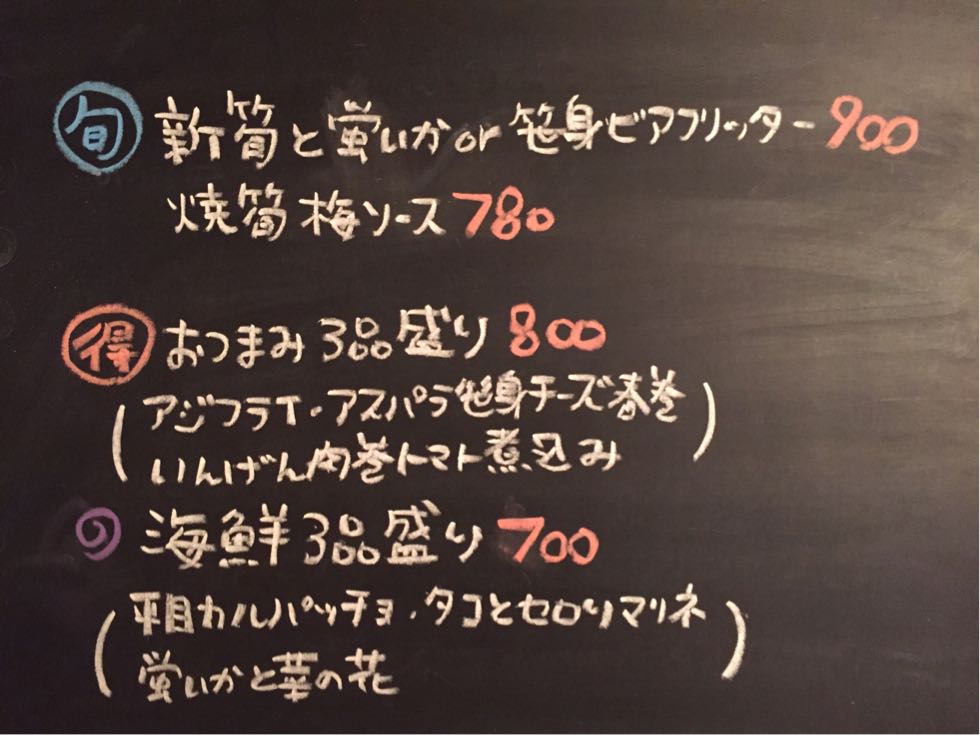 旬 新筍と蛍いかor 笹身ビアフリッター 900
焼筍 梅ソース 780
得 おつまみ 3品盛り 800
(アジフライ・アスパラ笹身チーズ春巻
いんげん肉巻トマト煮込み)
海鮮3品盛り 700
(平目カルパッチョ・タコとセロリマリネ
蛍いかと菜の花)